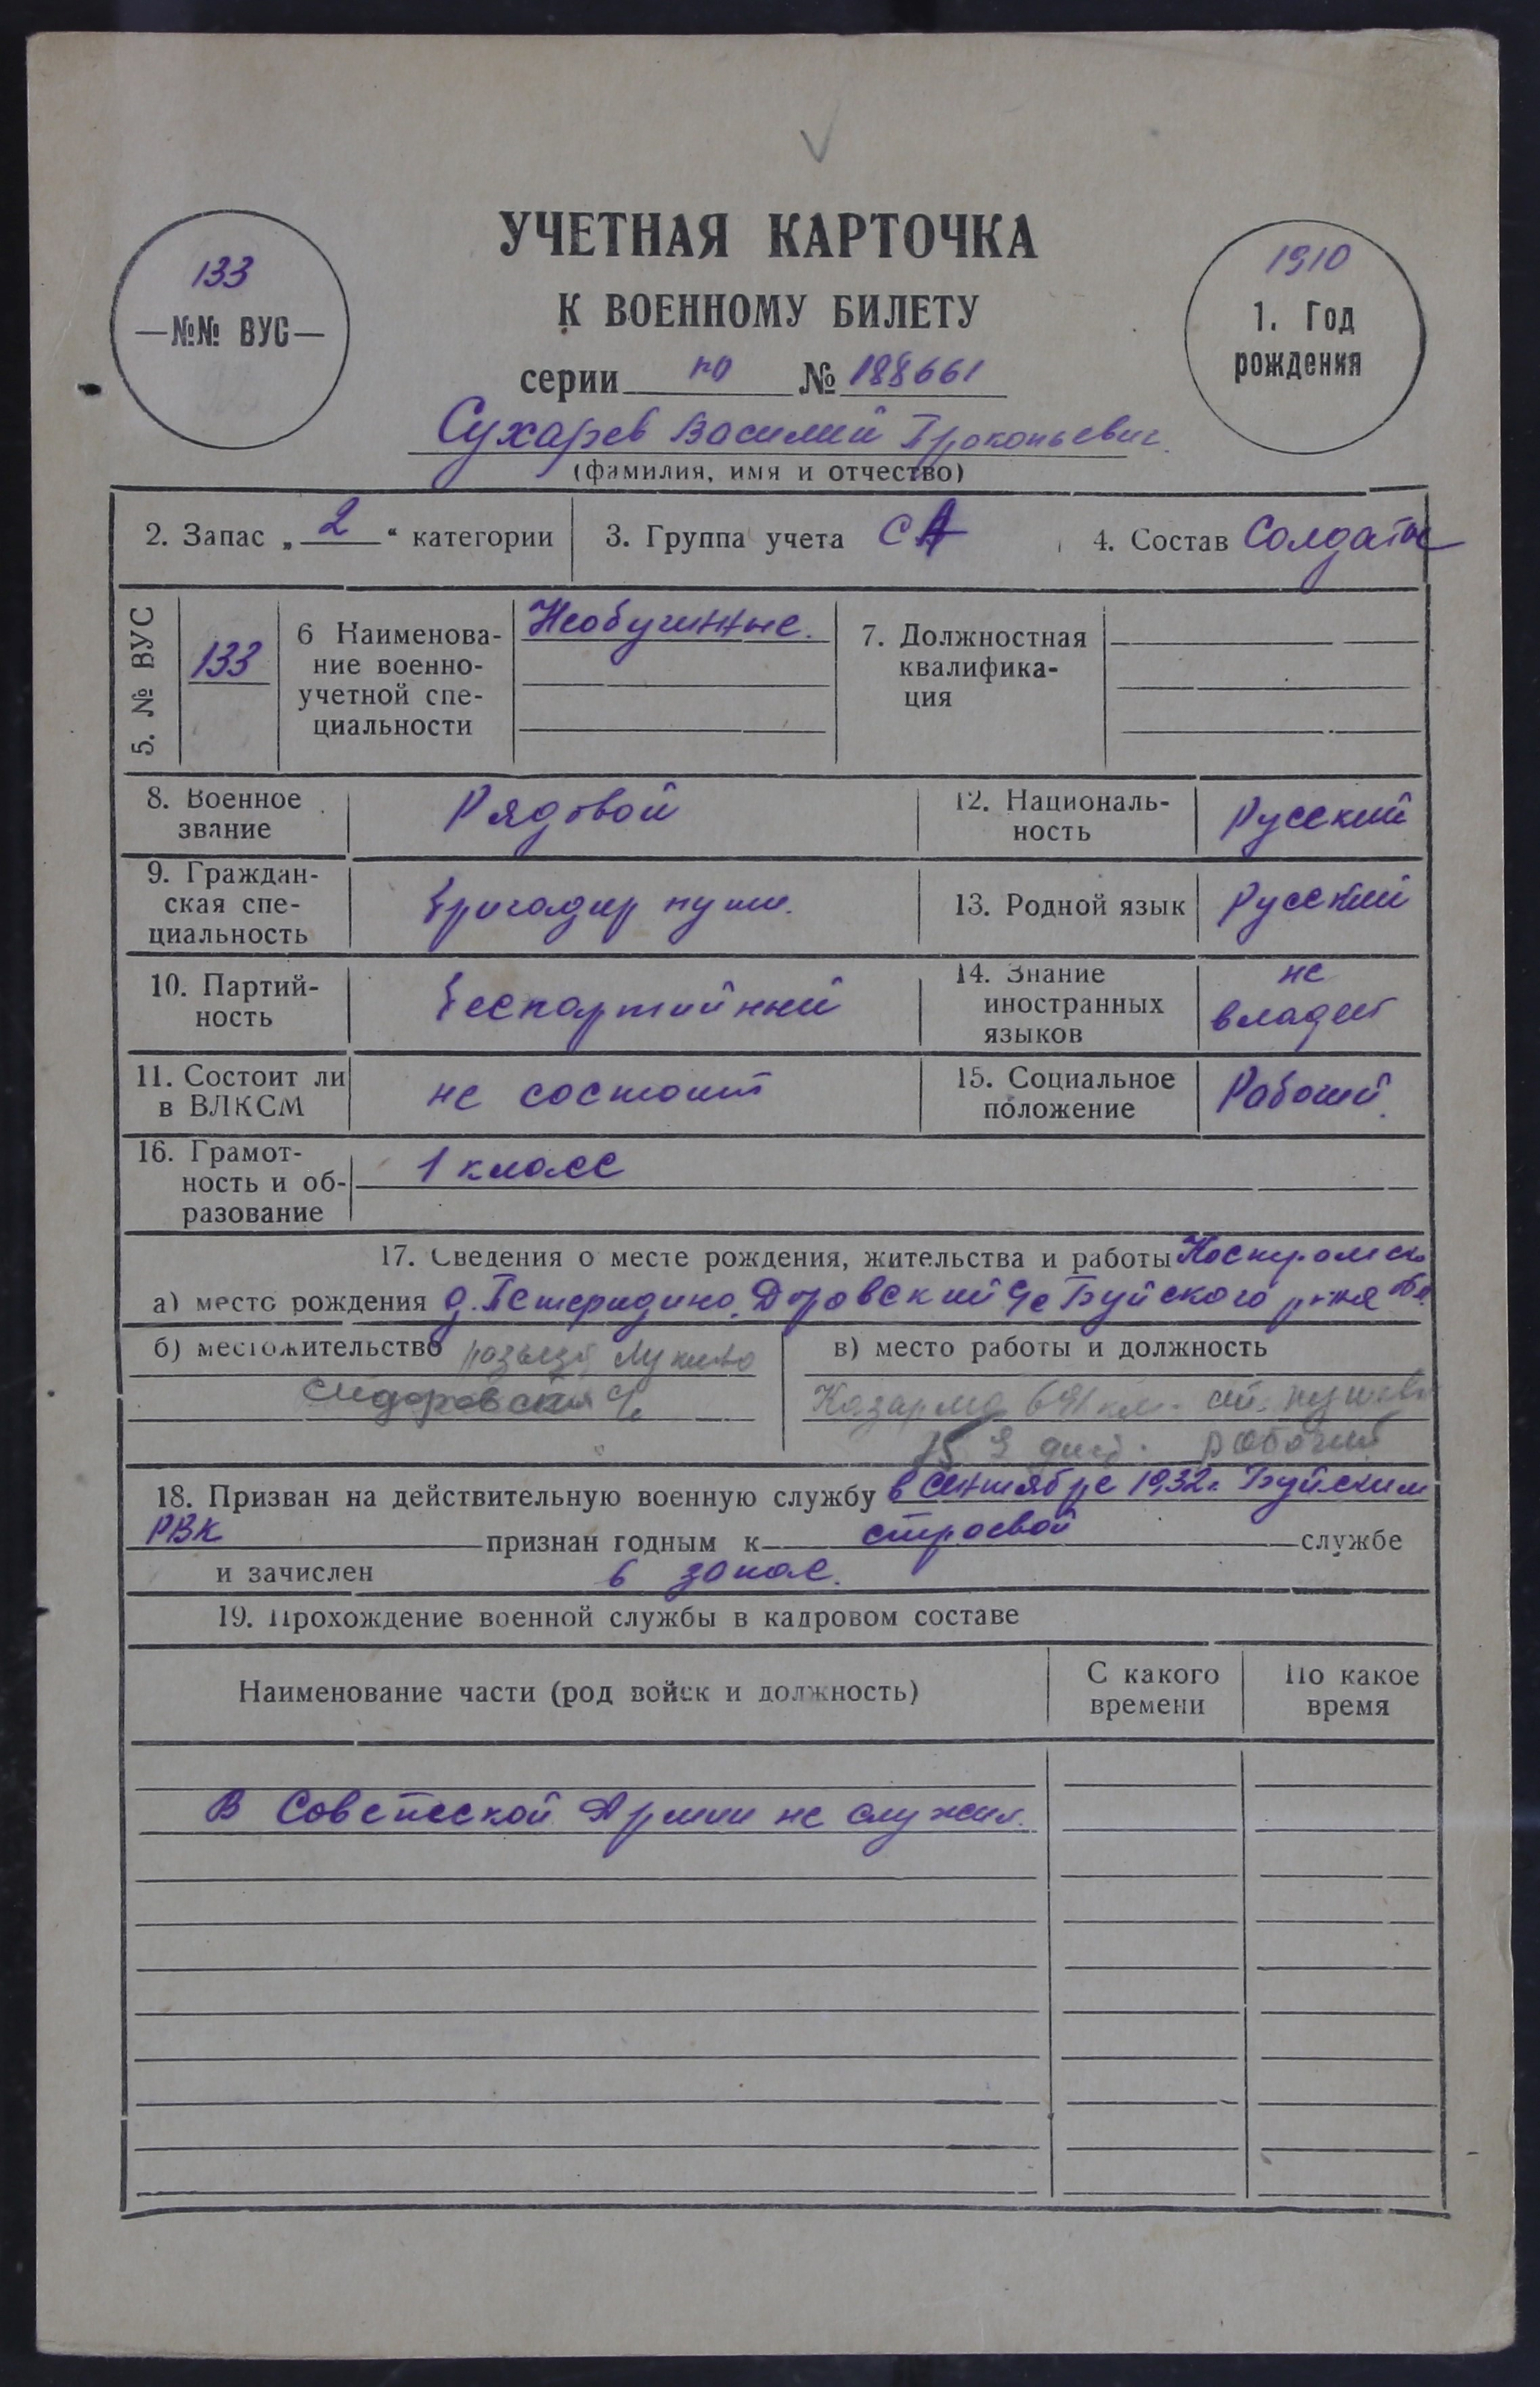 УЧЕТНАЯ КАРТОЧКА
К ВОЕННОМУ БИЛЕТУ
133
—№№ ВУС—
1910
1. Год
рождения
серии по № 188661
Сухарев Василий Прокопьевич
(фамилия, имя и отчество)
2. Запас „ 2 “ категории
3. Группа учета СА
4. Состав Солдаты
5. № ВУС
133
6 Наименова-
ние военно-
учетной спе-
циальности
Необученные.
7. Должностная
квалифика-
ция
8. Военное
звание
Рядовой
12. Националь-
ность
Русский
9. Граждан-
ская спе-
циальность
Бригадир пути.
13. Родной язык
Русский
10. Партий-
ность
Беспартийный
14. Знание
иностранных
языков
не
владеет
11. Состоит ли
в ВЛКСМ
не состоит
15. Социальное
положение
Рабочий.
16. Грамот-
ность и об-
разование
1 класс
17. Сведения о месте рождения, жительства и работы
а) место рождения д. Буйского р-на
б) местожительство разъезд
в) место работы и должность
Казарма 691 км.
рабочий
18. Призван на действительную военную службу в сентябре 1932г. Буйским
РВК признан годным к строевой службе
и зачислен в запас.
19. Прохождение военной службы в кадровом составе
Наименование части (род войск и должность)
С какого
времени
По какое
время
В Советской Армии не служил.